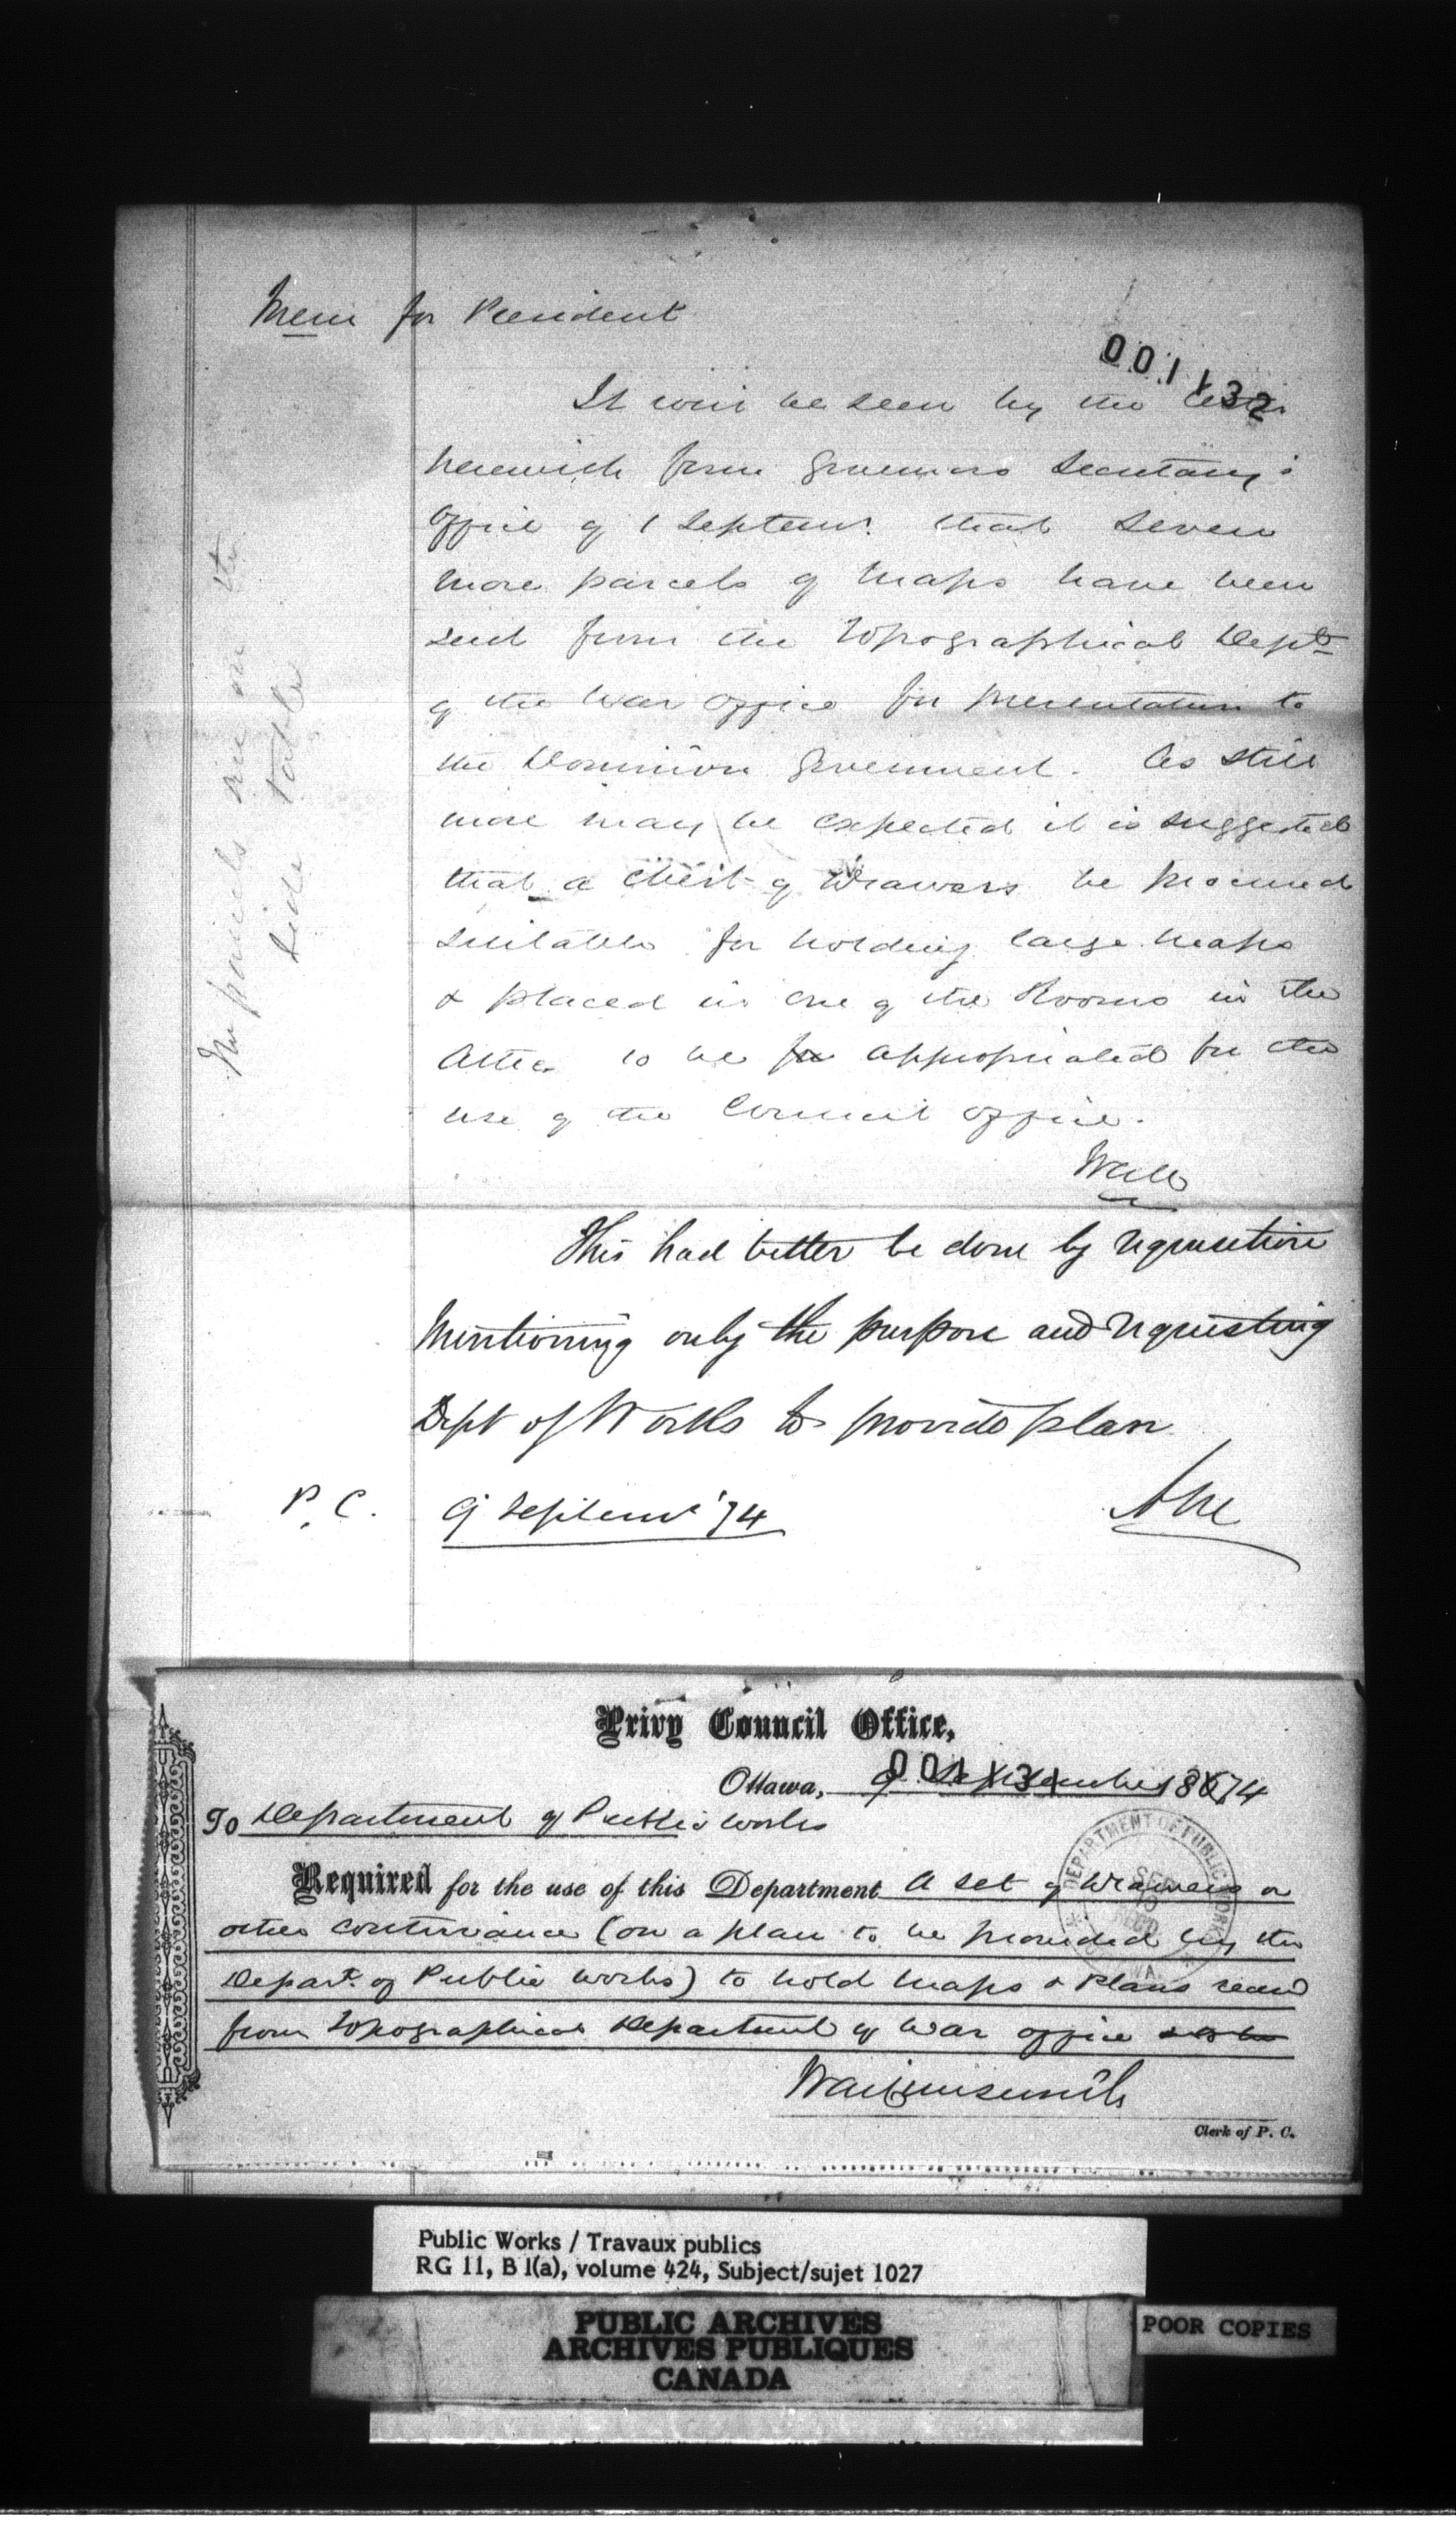 Mem for President
001132
It will be seen by the letter
herewith from Governors Secretary's
Office of 1 Septemr. that seven
more parcels of Maps have been
sent from the Topographical Dept
of the War Office for presentation to
the Dominion Government. As still
more may be expected it is suggested
that a chest of Drawers be procured
suitable for holding large maps
& placed in one of the Rooms in the
Attic to be appropriated for the
use of the Council Office.
The parcels are on the
side table
This had better be done by requisition
mentioning only the purpose and requesting
Dept of Works to provide plan
P. C. 9 Septemr '74
Privy Council Office,
Ottawa, 9 September 1874
001131
To Department of Public Works
Required for the use of this Department A set of Drawers or
other contrivance (on a plan to be provided by the
Depart. of Public Works) to hold Maps & Plans recd
from Topographical Department of War Office
DEPARTMENT OF PUBLIC WORKS
Clerk of P. C.
Public Works / Travaux publics
RG 11, B 1(a), volume 424, Subject/sujet 1027
PUBLIC ARCHIVES
ARCHIVES PUBLIQUES
CANADA
POOR COPIES